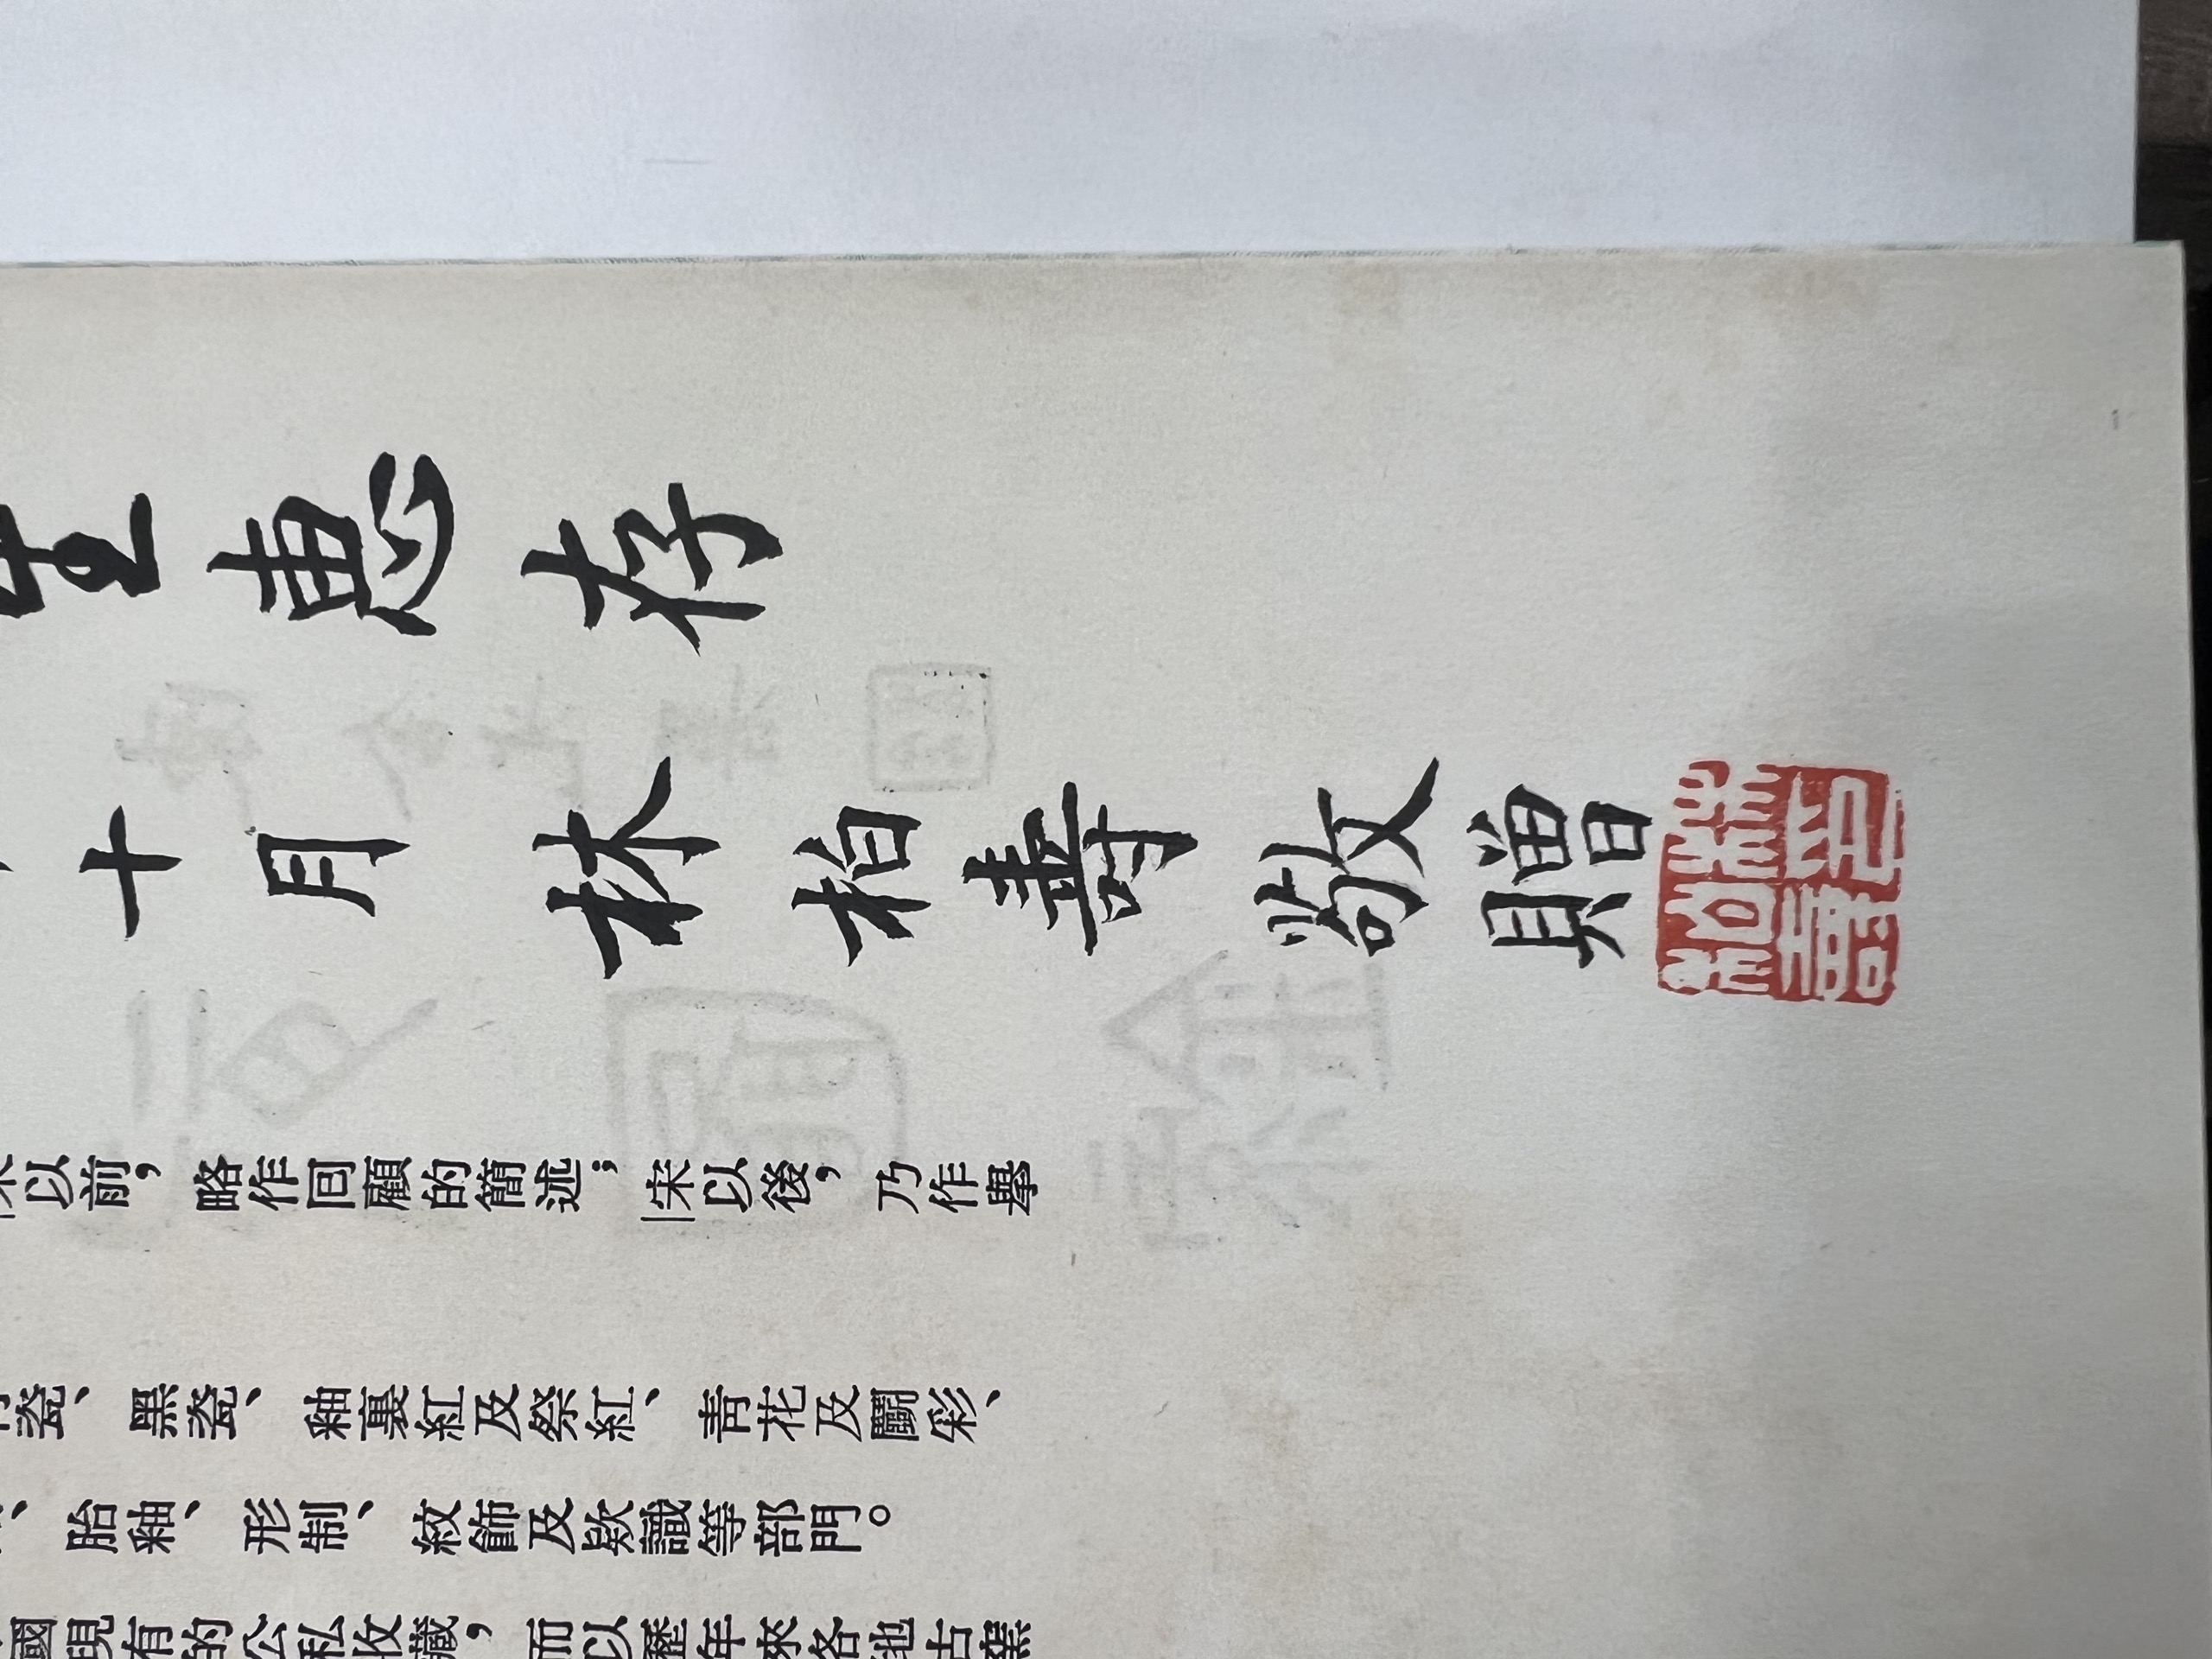 惠存
十月 林柏壽敬贈
林印柏壽
以前，略作回顧的簡述；宋以後，乃作舉
瓷、黑瓷、釉裏紅及祭紅、青花及鬭彩、
、胎釉、形制、紋飾及欵識等部門。
國現有的公私收藏，而以歷年來各地古窯